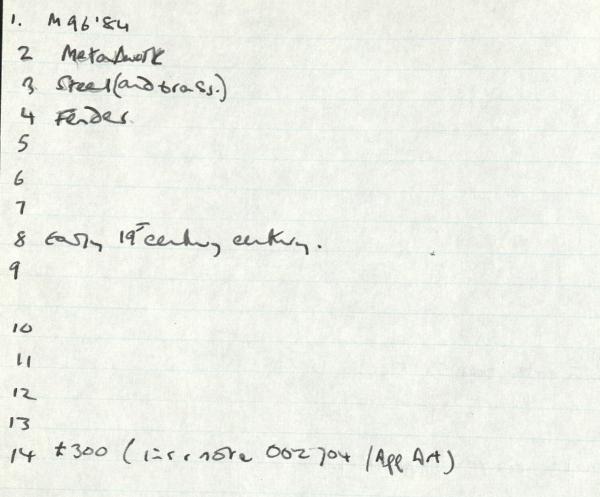 1. M96'84
2 Metalwork
3 Steel (and brass.)
4 Fender.
5
6
7
8 Early 19th century century.
9
10
11
12
13
14 £300 ( note 002704 / App Art)